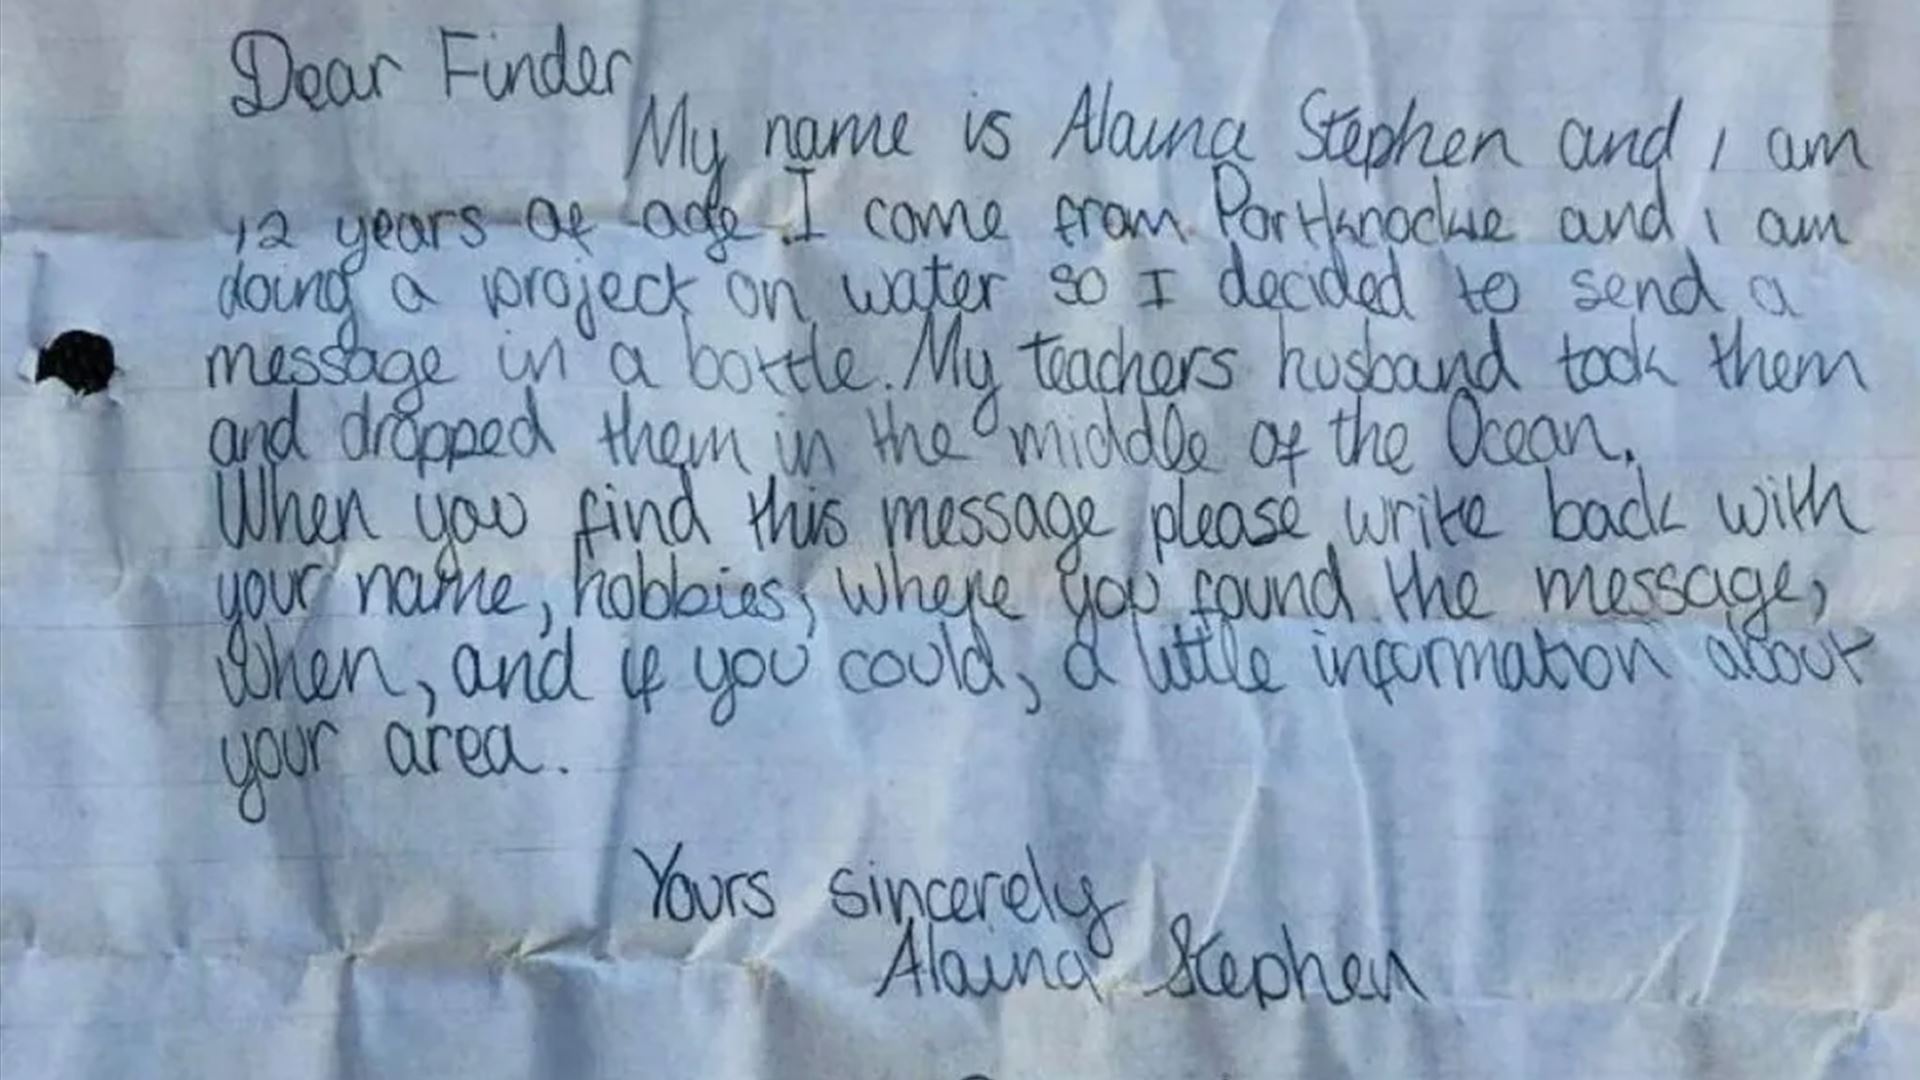 Dear Finder
My name is Alaina Stephen and I am
12 years of age. I come from Portknockie and I am
doing a project on water so I decided to send a
message in a bottle. My teachers husband took them
and dropped them in the middle of the Ocean.
When you find this message please write back with
your name, hobbies, where you found the message,
when, and if you could, a little information about
your area.
Yours sincerely
Alaina Stephen